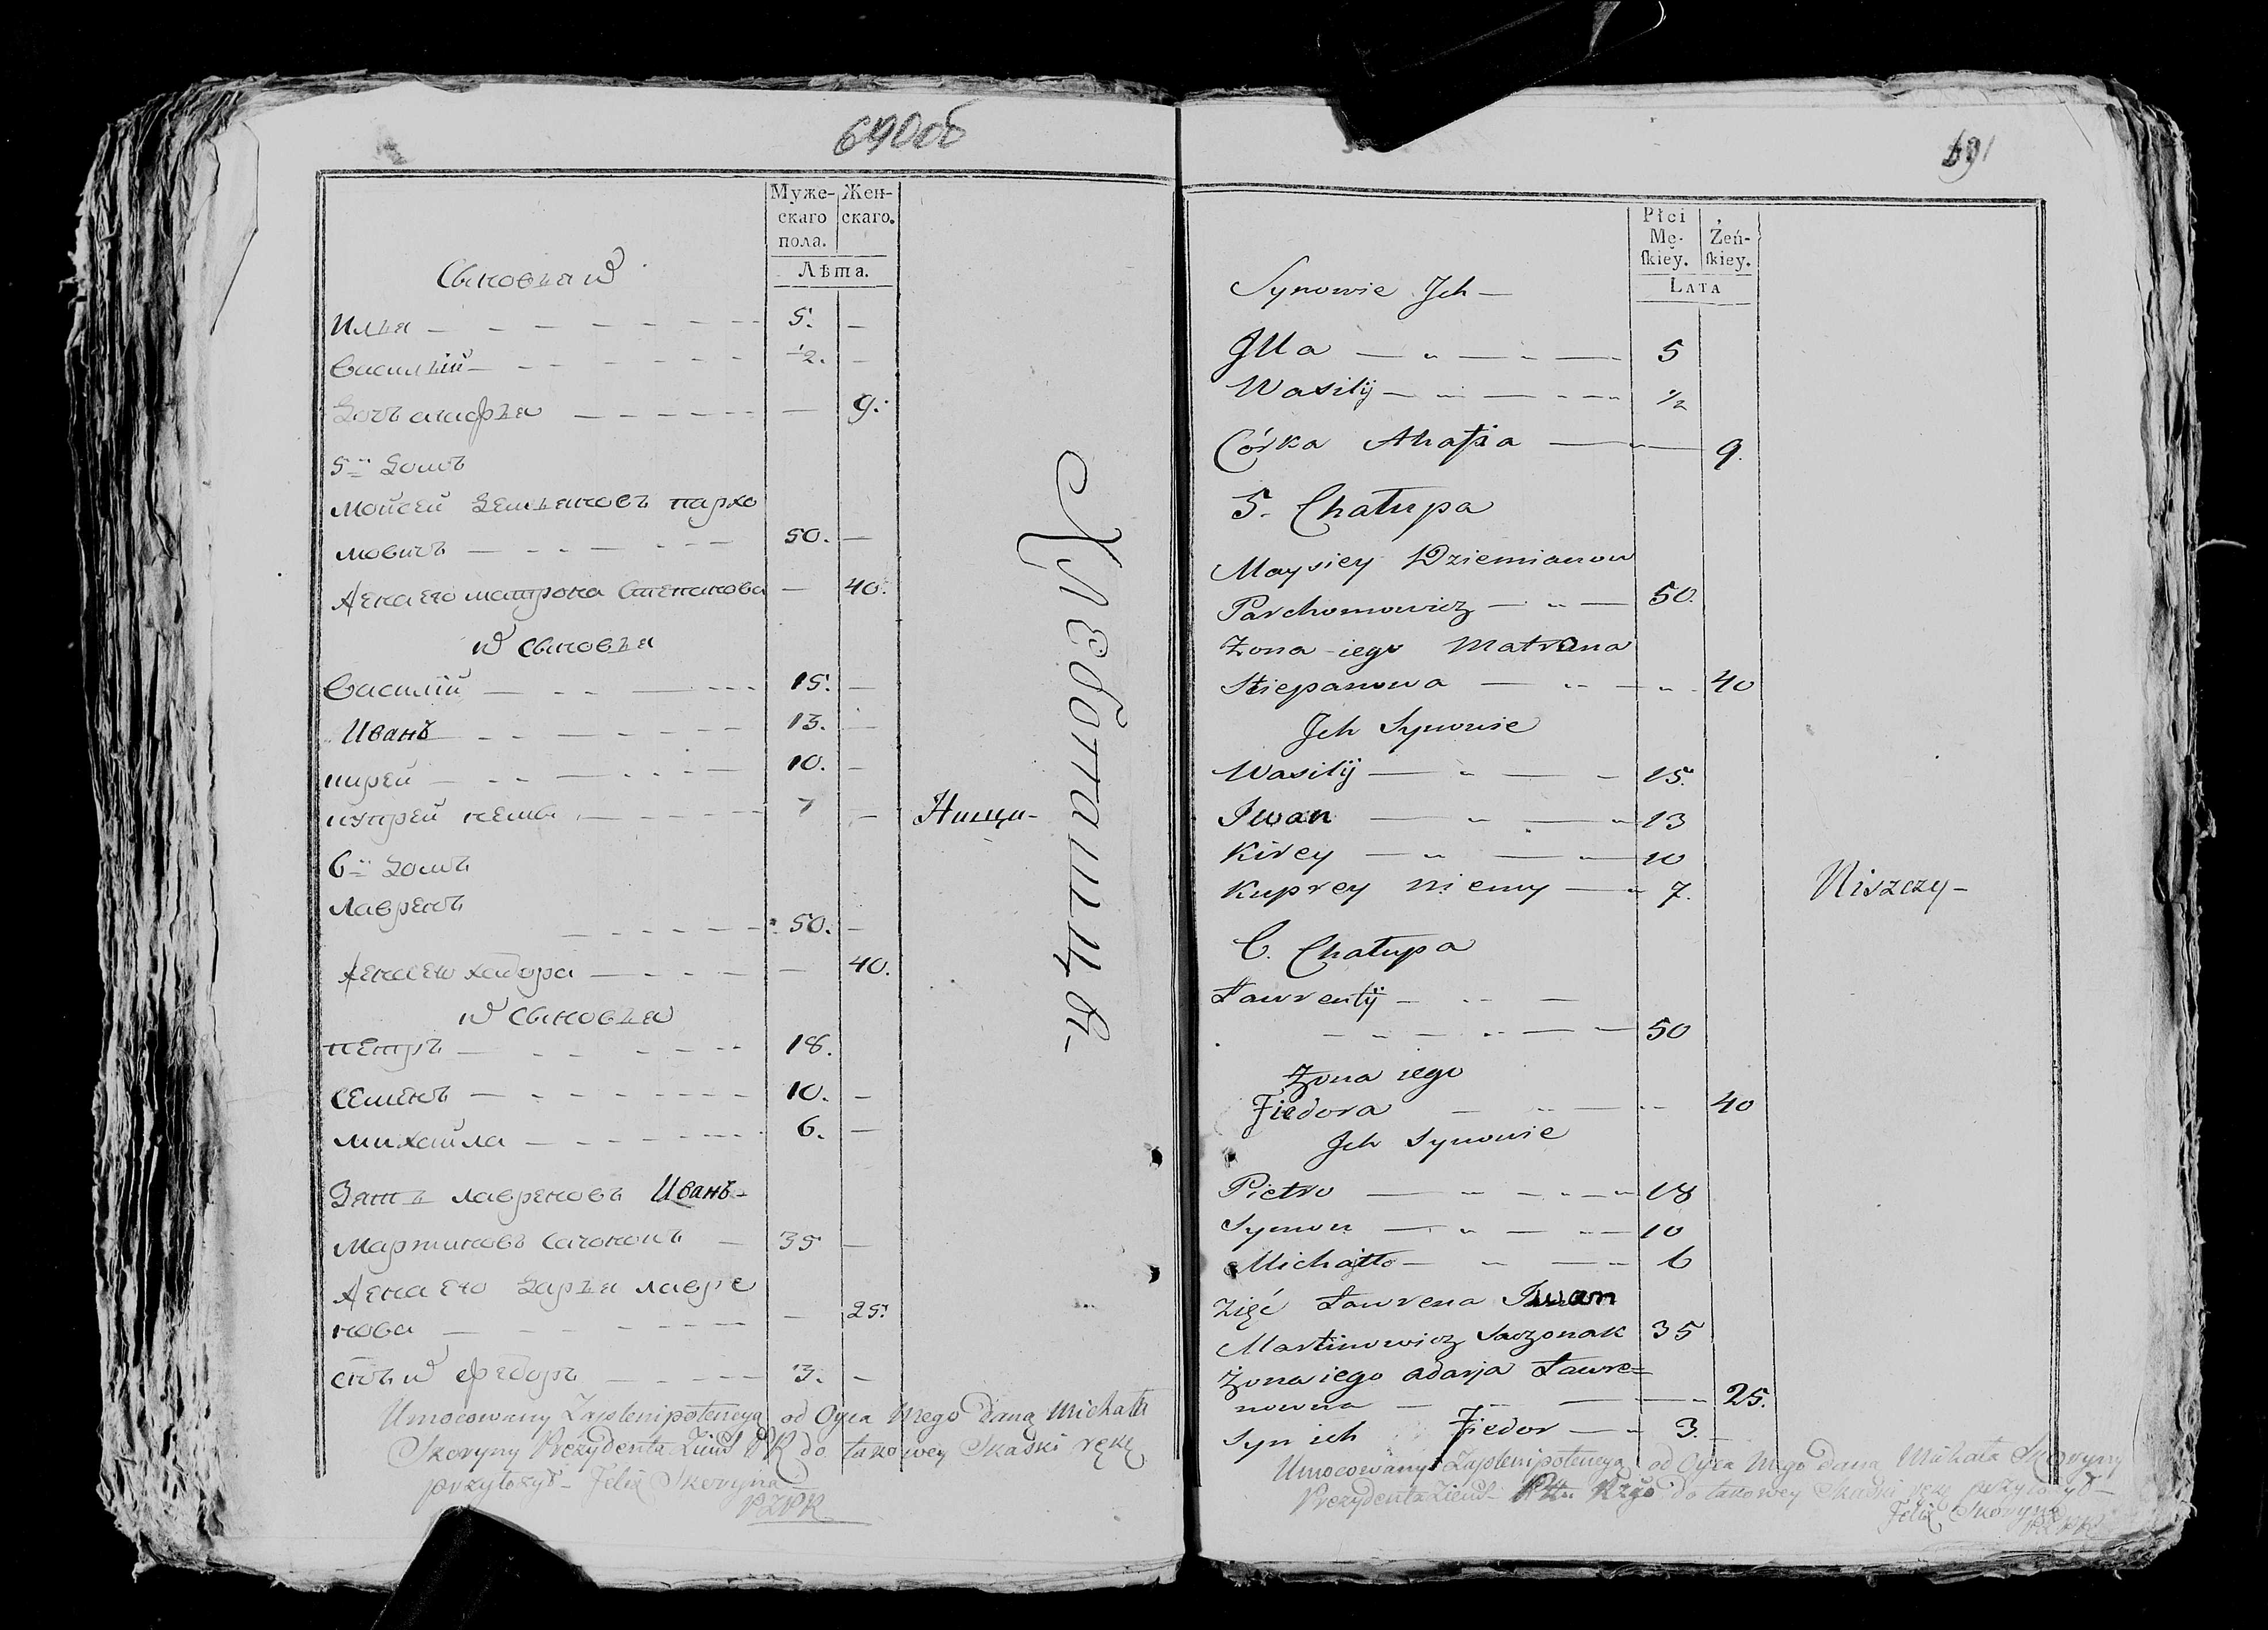 690об
Муже-
скаго
пола.
Жен-
скаго.
Лѣта.
Сыновья и͏̈х
Илья 5. —
Василій ½. —
Дочь агафья — 9.
5й Домъ
Мойсей Демьяновъ пархо
мовичъ 50. —
Жена его матрона Степанова — 40.
их Сыновья
Василій 15. —
Иванъ 13. —
кирей 10. —
купрей немы 7 — Нищи-
6й Домъ
Лавренъ
50. —
Жена его хадора — 40.
их сыновья
петръ 18.
Семенъ 10. —
михайла 6. —
Зять лавреновъ Иванъ-
Мартиновъ Сачонокъ — 35 —
Жена его Дарья лавре
нова — 25.
сынъ их федоръ 3. —
Umocowany Zaplenipotencyą od Oyca Mego daną Michała
Skoryny Prezydenta Ziems P R do takowey Skaski rękę
przyłożył — Felix Skoryna
PZPR
691
Płci
Mę-
skiey.
Żeń-
skiey.
LATA
Synowie Jch —
Jlla 5
Wasilij ½
Córka Ahafia 9.
5. Chałupa
Maysiey Dziemianow
Parchomowicz 50.
Żona iego Matrona
Stiepanowa 40
Jch Synowie
Wasilij 15.
Iwan 13
Kirey 10
Kuprey niemy 7. Niszczy-
6. Chałupa
Ławrentij
50
Żona iego
Fiedora 40
Jch Synowie
Pietro 18
Symon 10
Michałło 6
Zięć Ławrena Iwan
Martinowicz Saczonak 35
Żona iego adarja Ławre=
nowna 25.
Syn ich Fiedor 3. —
Umocowany Zaplenipotencyą od Oyca Mego daną Michała Skoryny
Prezydenta Ziems do takowey Skaski rękę przyłożył —
Felix Skoryna
PZPR